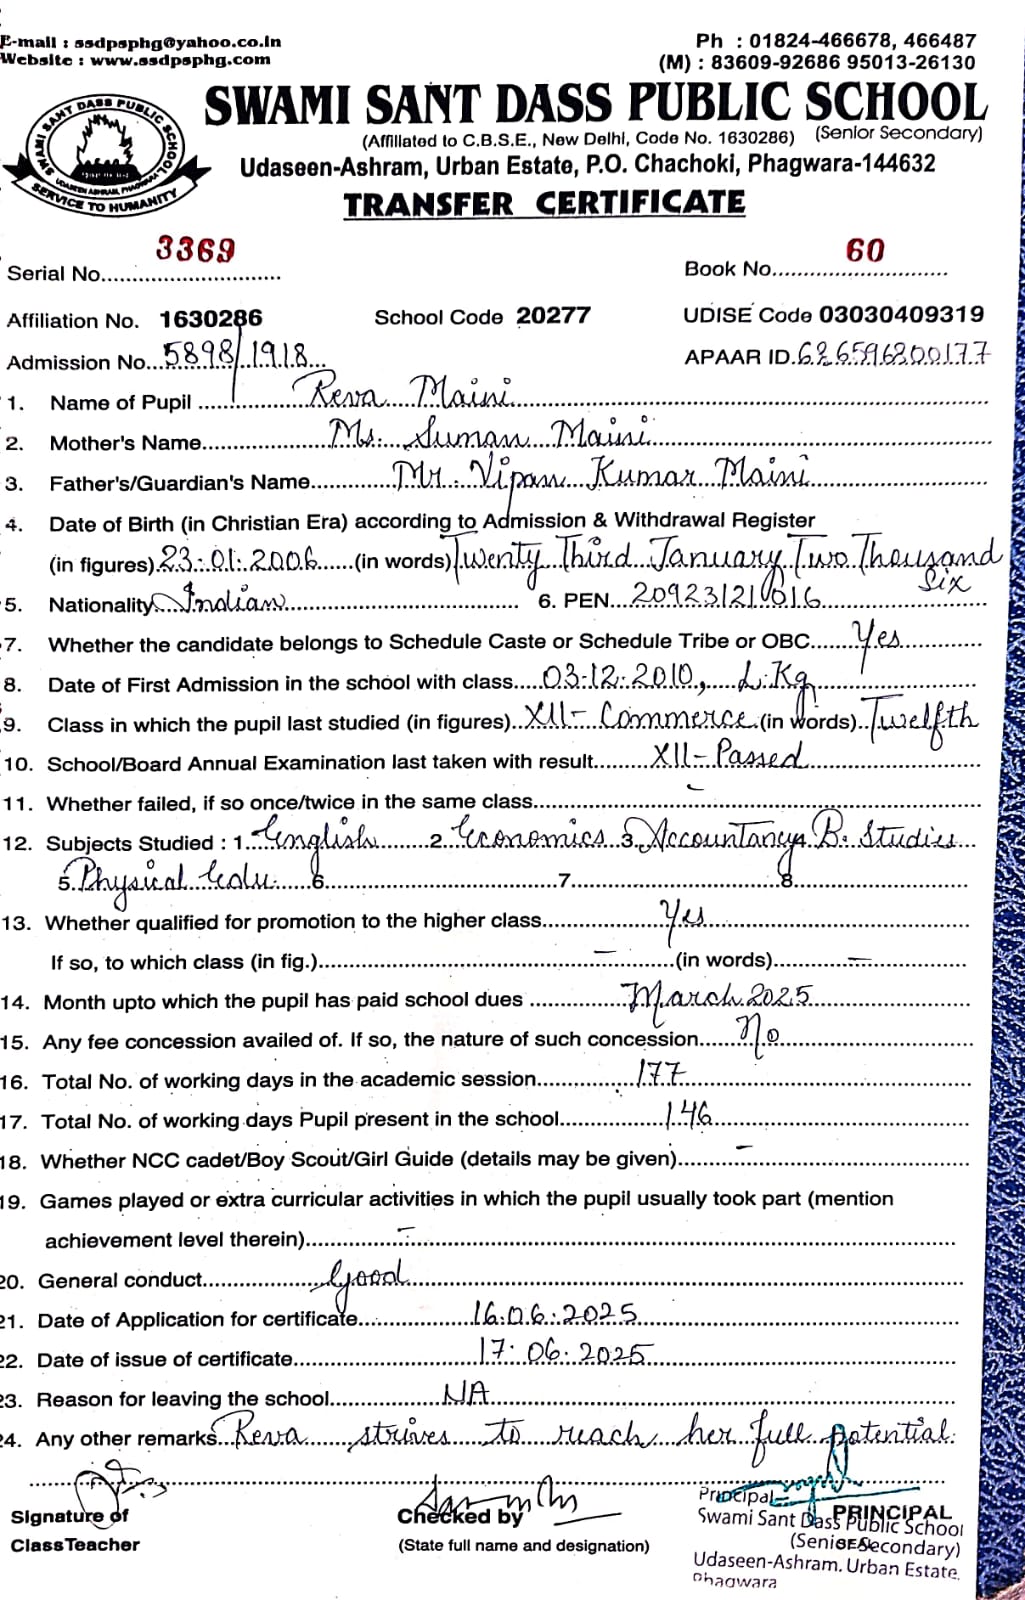 E-mail : ssdpsphg@yahoo.co.in
Website : www.ssdpsphg.com
Ph : 01824-466678, 466487
(M) : 83609-92686 95013-26130
SWAMI SANT DASS PUBLIC SCHOOL
SWAMI SANT DASS PUBLIC SCHOOL
(Affiliated to C.B.S.E., New Delhi, Code No. 1630286) (Senior Secondary)
UDASEEN ASHRAM, PHAGWARA
SERVICE TO HUMANITY
Udaseen-Ashram, Urban Estate, P.O. Chachoki, Phagwara-144632
TRANSFER CERTIFICATE
Serial No. 3369 Book No. 60
Affiliation No. 1630286 School Code 20277 UDISE Code 03030409319
Admission No. 5898/1918 APAAR ID. 626596200177
1. Name of Pupil Reva Maini
2. Mother's Name Ms. Suman Maini
3. Father's/Guardian's Name Mr. Vipan Kumar Maini
4. Date of Birth (in Christian Era) according to Admission & Withdrawal Register
(in figures) 23.01.2006 (in words) Twenty Third January Two Thousand
Six
5. Nationality Indian 6. PEN 20923121016
7. Whether the candidate belongs to Schedule Caste or Schedule Tribe or OBC Yes
8. Date of First Admission in the school with class 03.12.2010, L.Kg
9. Class in which the pupil last studied (in figures) XII- Commerce (in words) Twelfth
10. School/Board Annual Examination last taken with result XII-Passed
11. Whether failed, if so once/twice in the same class -
12. Subjects Studied : 1. English 2. Economics 3. Accountancy 4. B. Studies
5. Physical Edu. 6 7 8
13. Whether qualified for promotion to the higher class Yes
If so, to which class (in fig.) - (in words) -
14. Month upto which the pupil has paid school dues March 2025
15. Any fee concession availed of. If so, the nature of such concession No
16. Total No. of working days in the academic session 177
17. Total No. of working days Pupil present in the school 146
18. Whether NCC cadet/Boy Scout/Girl Guide (details may be given) -
19. Games played or extra curricular activities in which the pupil usually took part (mention
achievement level therein) -
20. General conduct Good
21. Date of Application for certificate 16.06.2025
22. Date of issue of certificate 17.06.2025
23. Reason for leaving the school NA
24. Any other remarks Reva strives to reach her full potential.
Signature of
ClassTeacher
Checked by
(State full name and designation)
PRINCIPAL
SEAL
Principal
Swami Sant Dass Public School
(Senior Secondary)
Udaseen-Ashram. Urban Estate,
Phagwara